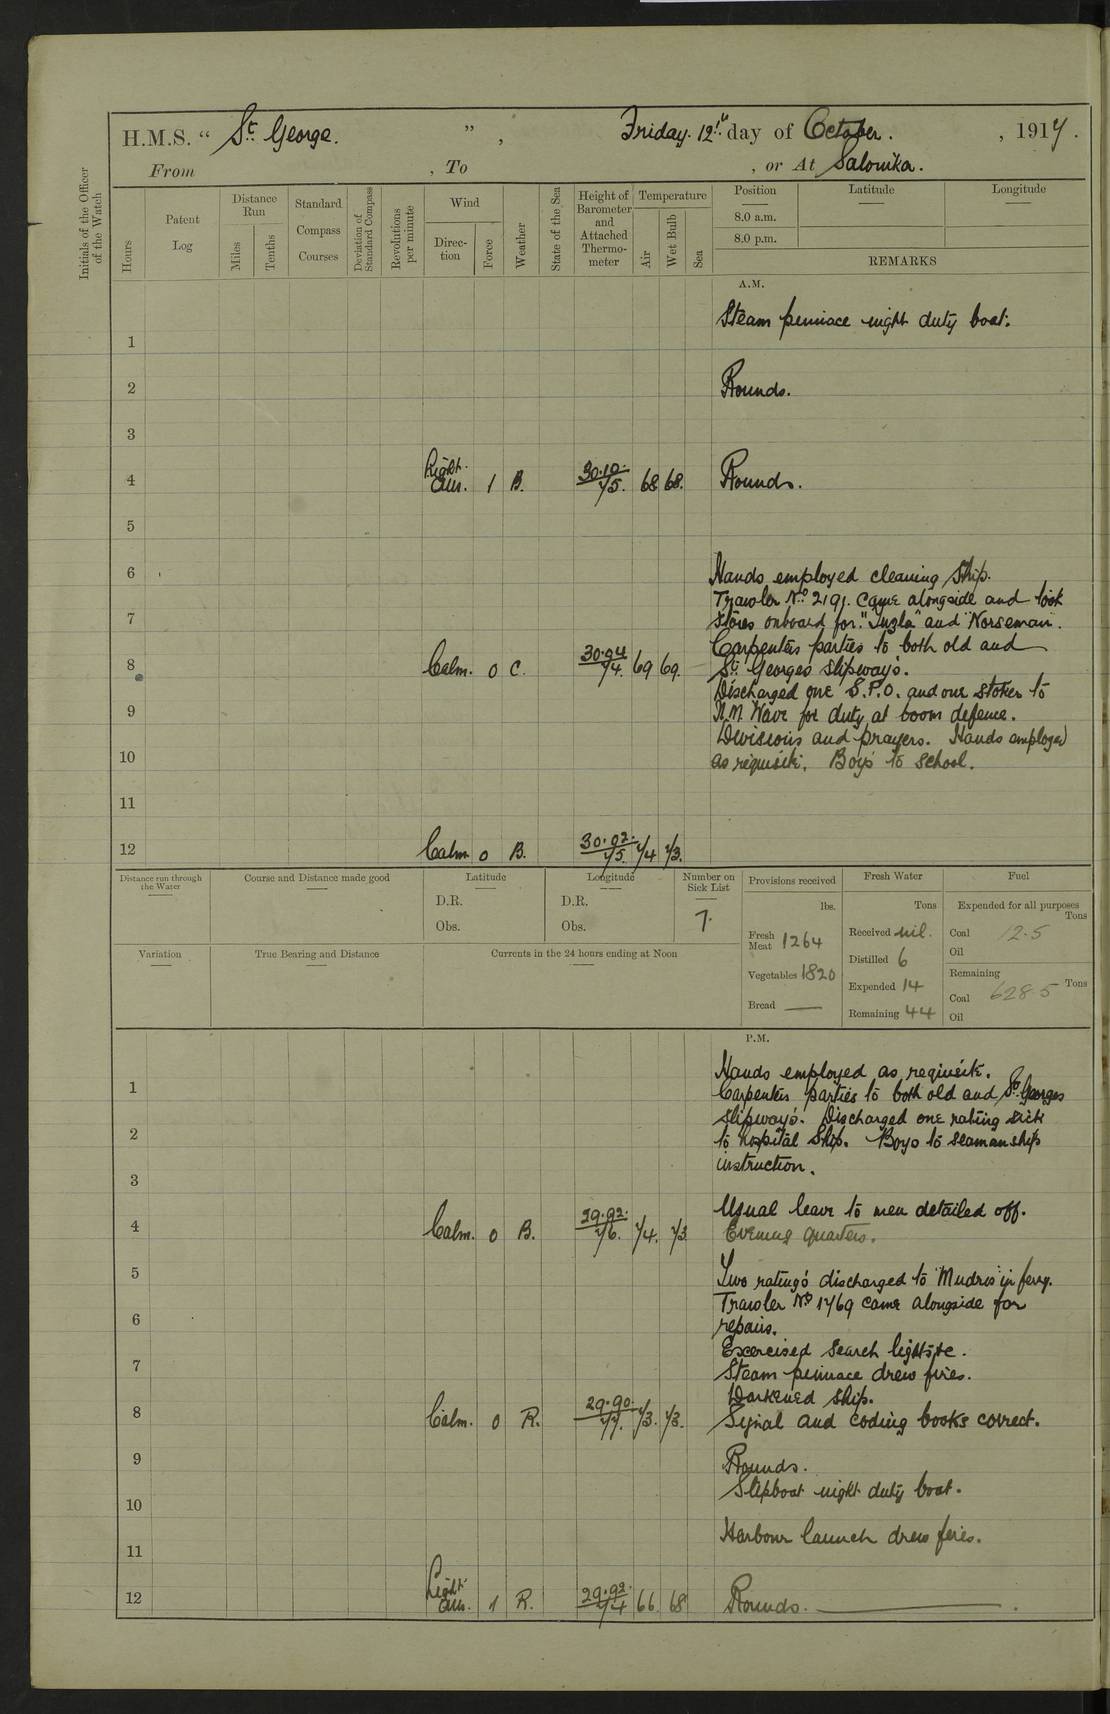 H.M.S. “ St George. ” , Friday. 12th day of October. , 1917.
From , To , or At Salonika.
Initials of the Officer of the Watch
Hours
Patent Log
Distance Run
Miles
Tenths
Standard Compass Courses
Deviation of Standard Compass
Revolutions per minute
Wind
Direction
Force
Weather
State of the Sea
Height of Barometer and Attached Thermometer
Temperature
Air
Wet Bulb
Sea
Position
Latitude
Longitude
8.0 a.m.
8.0 p.m.
REMARKS
A.M.
Steam pinnace night duty boat.
1
2 Rounds.
3
4 Light airs. 1 B. 30.10. 75. 68 68. Rounds.
5
6 Hands employed cleaning ship.
Trawler No 2191. came alongside and took
7 stores onboard for "Tuzla" and "Norseman".
Carpenters parties to both old and
8 Calm. 0 C. 30.04 74. 69 69. St Georges slipway's.
Discharged one S.P.O. and one stoker to
9 N.M. Wave for duty at boom defence.
Divisions and prayers. Hands employed
10 as requisite. Boys to school.
11
12 Calm 0 B. 30.02. 75. 74 73.
Distance run through the Water
Course and Distance made good
Latitude
D.R.
Obs.
Longitude
D.R.
Obs.
Number on Sick List
7.
Provisions received
lbs.
Fresh Meat 1264
Vegetables 1820
Bread —
Fresh Water
Tons
Received nil.
Distilled 6
Expended 14
Remaining 44
Fuel
Expended for all purposes
Tons
Coal 12.5
Oil
Remaining
Tons
Coal 628.5
Oil
Variation
True Bearing and Distance
Currents in the 24 hours ending at Noon
P.M.
Hands employed as requisite.
1 Carpenters parties to both old and St Georges
slipway's. Discharged one rating sick
2 to hospital ship. Boys to seamanship
3 instruction.
Usual leave to men detailed off.
4 Calm. 0 B. 29.92. 76. 74. 73 Evening quarters.
5 Two rating's discharged to "Mudros" in ferry.
Trawler No 1769 came alongside for
6 repairs.
Excercised search lights etc.
7 Steam pinnace drew fires.
Darkened ship.
8 Calm. 0 R. 29.90. 77. 73. 73. Signal and coding books correct.
9 Rounds.
Slipboat night duty boat.
10
Harbour launch drew fires.
11
12 Light airs. 1 R. 29.92. 74 66 68 Rounds.